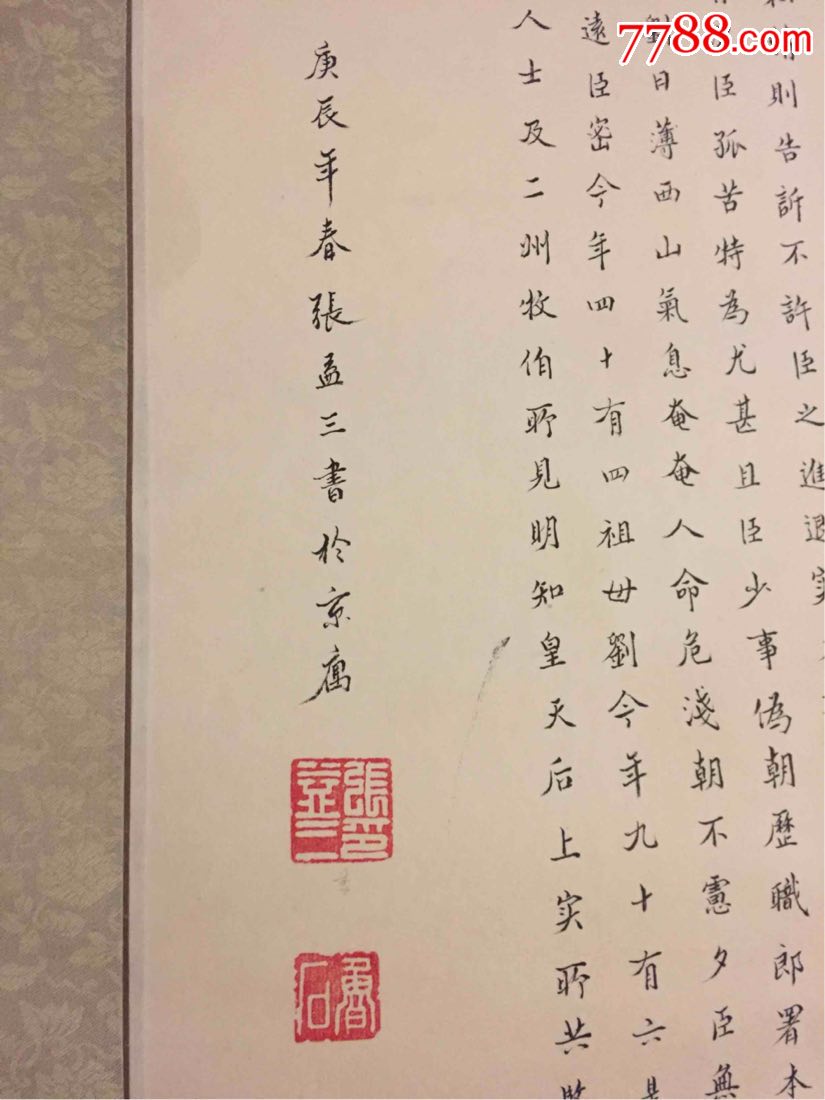 7788.com
則告訴不許臣之進退实
臣孤苦特為尤甚且臣少事偽朝歷職郎署本
劉日薄西山氣息奄奄人命危淺朝不慮夕臣無
遠臣密今年四十有四祖母劉今年九十有六是
人士及二州牧伯所見明知皇天后上实所共
庚辰年春張孟三書於京寓
張印
孟三